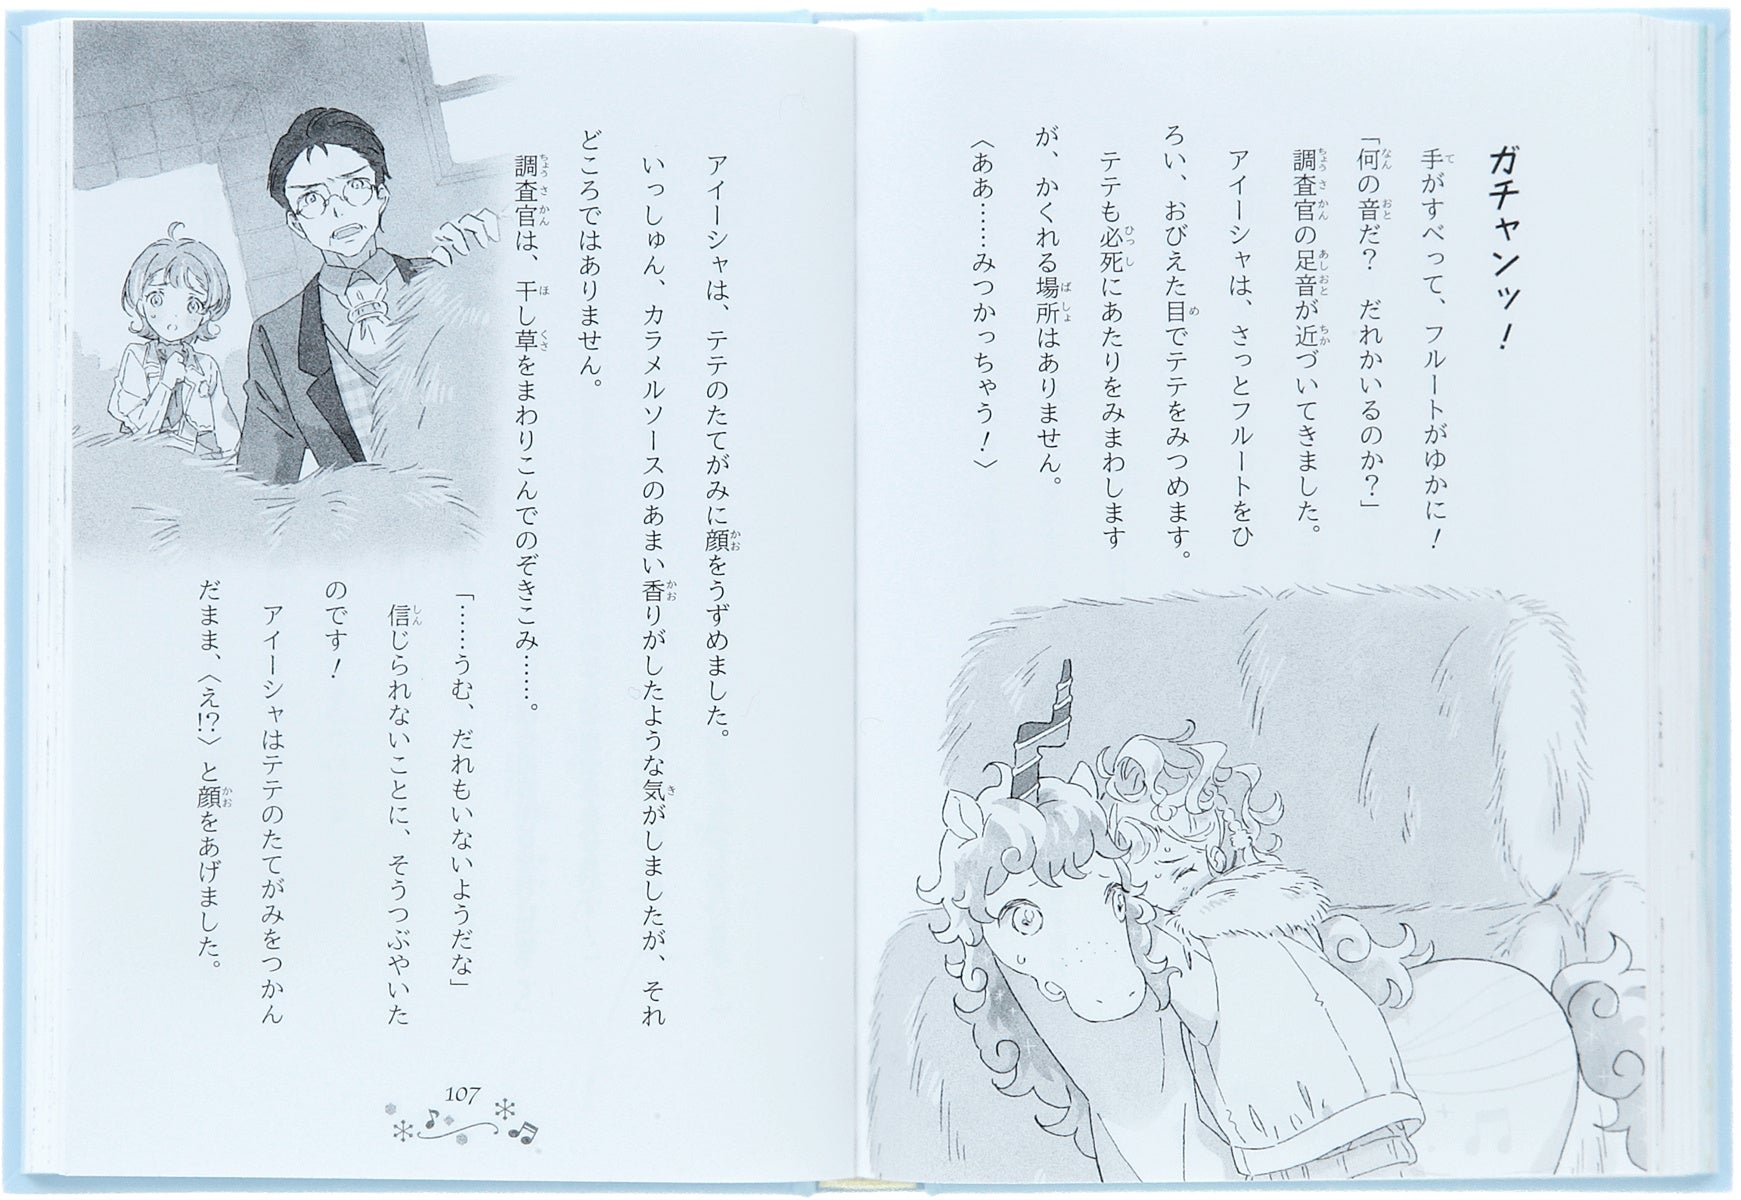 ガチャンッ！
手がすべって、フルートがゆかに！
「何の音だ？　だれかいるのか？」
調査官の足音が近づいてきました。
アイーシャは、さっとフルートをひ
ろい、おびえた目でテテをみつめます。
テテも必死にあたりをみまわします
が、かくれる場所はありません。
〈ああ……みつかっちゃう！〉
アイーシャは、テテのたてがみに顔をうずめました。
いっしゅん、カラメルソースのあまい香りがしたような気がしましたが、それ
どころではありません。
調査官は、干し草をまわりこんでのぞきこみ……。
「……うむ、だれもいないようだな」
信じられないことに、そうつぶやいた
のです！
アイーシャはテテのたてがみをつかん
だまま、〈え!?〉と顔をあげました。
107